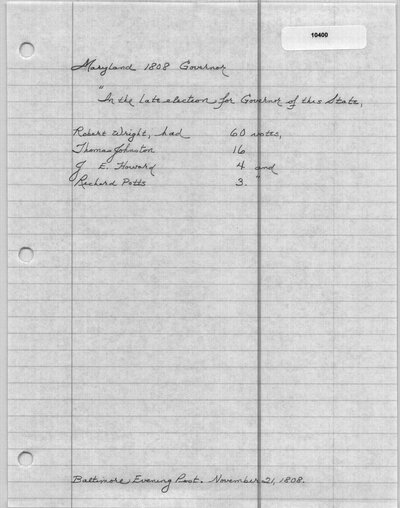 10400
Maryland 1808 Governor
"In the late election for Governor of this State,
Robert Wright, had 60 votes,
Thomas Johnston 16
J. E. Howard 4 and
Richard Potts 3."
Baltimore Evening Post. November 21, 1808.